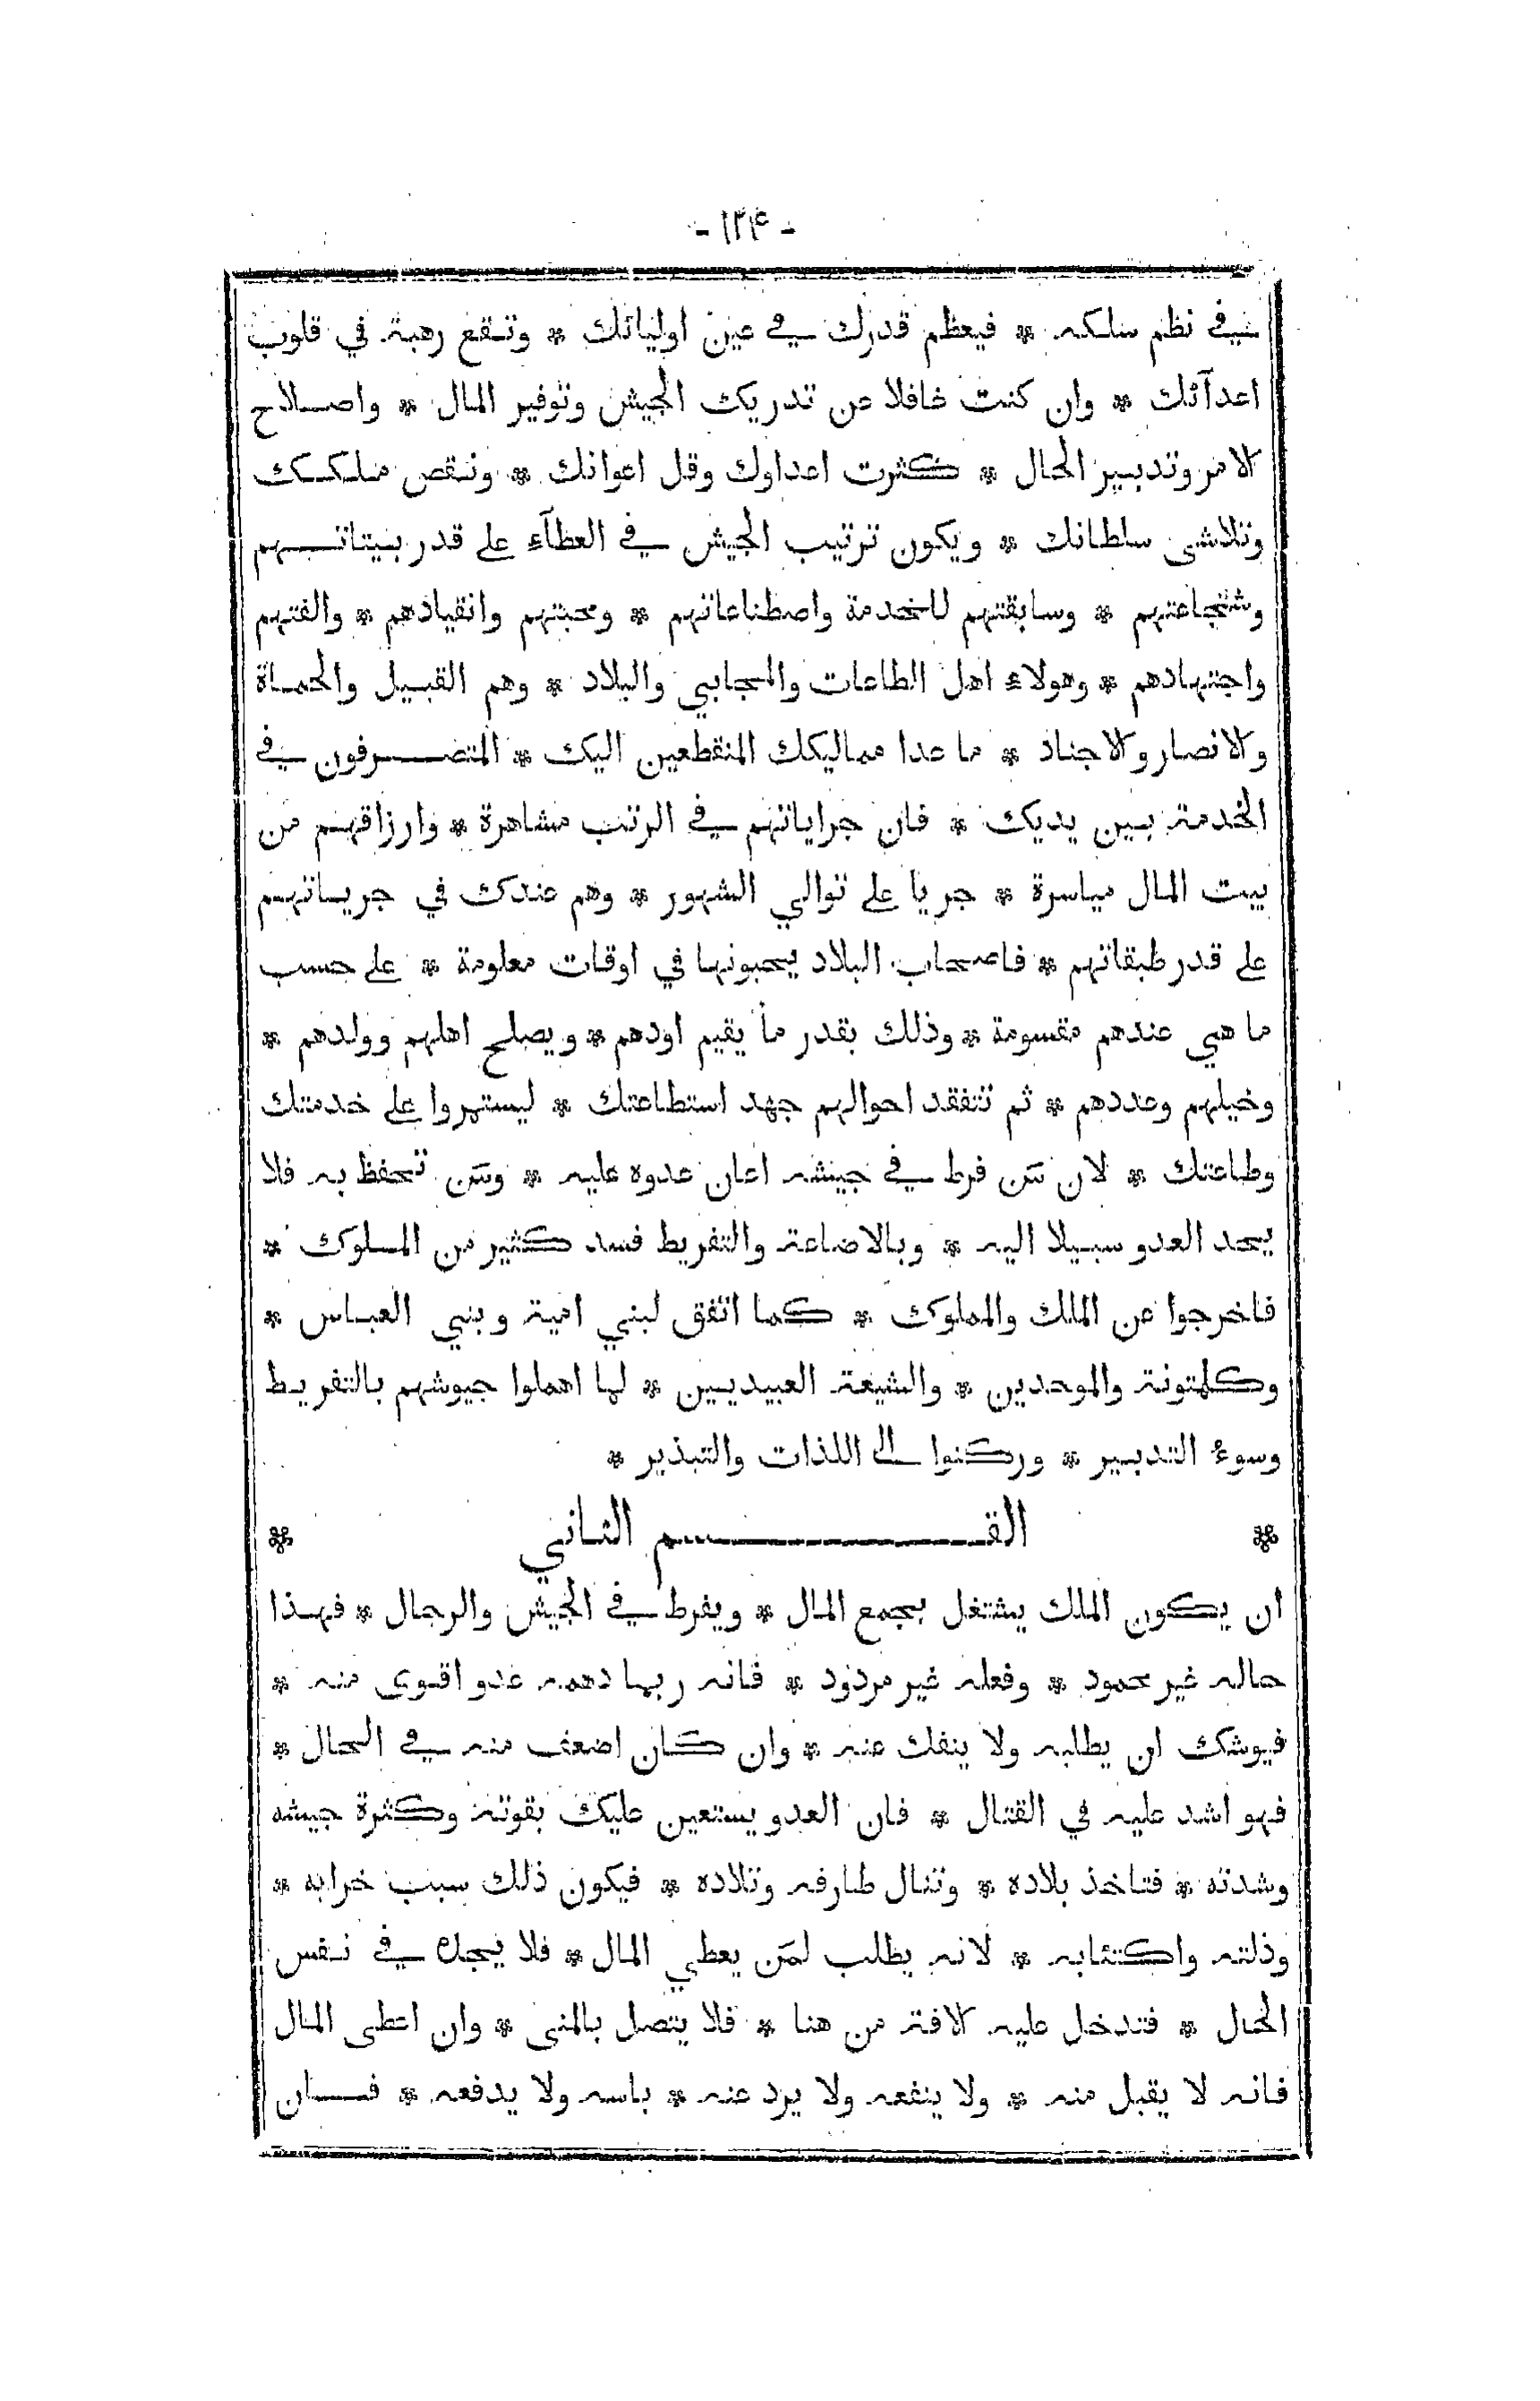 - ١٢٤ -
في نظم سلكه * فيعظم قدرك في عين اوليائك * وتقع رهبة في قلوب
اعدآئك * وان كنت غافلا عن تدريك الجيش وتوفير المال * واصلاح
الامر وتدبير الحال * كثرت اعداوك وقل اعوانك * ونقص ملكك
وتلاشى سلطانك * ويكون ترتيب الجيش في العطآء على قدر بيتاتهم
وشجاعتهم * وسابقتهم للخدمة واصطناعاتهم * ومحبتهم وانقيادهم * والفتهم
واجتهادهم * وهولاء اهل الطاعات والمجابي والبلاد * وهم القبيل والحماة
والانصار والاجناد * ما عدا مماليكك المنقطعين اليك * المتصرفون في
الخدمة بين يديك * فان جراياتهم في الرتب مشاهرة * وارزاقهم من
بيت المال مياسرة * جريا على توالي الشهور * وهم عندك في جرياتهم
على قدر طبقاتهم * فاصحاب البلاد يحبونها في اوقات معلومة * على حسب
ما هي عندهم مقسومة * وذلك بقدر ما يقيم اودهم * ويصلح اهلهم وولدهم *
وخيلهم وعددهم * ثم تتفقد احوالهم جهد استطاعتك * ليستمروا على خدمتك
وطاعتك * لان من فرط في جيشه اعان عدوه عليه * ومن تحفظ به فلا
يجد العدو سبيلا اليه * وبالاضاعة والتفريط فسد كثير من الملوك *
فاخرجوا عن الملك والمملوك * كما اتفق لبني امية وبني العباس *
وكلمتونة والموحدين * والشيعة العبيديين * لما اهملوا جيوشهم بالتفريط
وسوء التدبير * وركنوا الى اللذات والتبذير *
* القسم الثاني *
ان يكون الملك يشتغل بجمع المال * ويفرط في الجيش والرجال * فهذا
حاله غير محمود * وفعله غير مردود * فانه ربما دهمه عدو اقوى منه *
فيوشك ان يطلبه ولا ينفك عنه * وان كان اضعف منه في الحال *
فهو اشد عليه في القتال * فان العدو يستعين عليك بقوته وكثرة جيشه
وشدته * فتاخذ بلاده * وتنال طارفه وتلاده * فيكون ذلك سبب خرابه *
وذلته واكتئابه * لانه يطلب لمَن يعطي المال * فلا يجده في نفس
الحال * فتدخل عليه الافة من هنا * فلا يتصل بالمنى * وان اعطى المال
فانه لا يقبل منه * ولا ينفعه ولا يرد عنه * باسه ولا يدفعه * فان